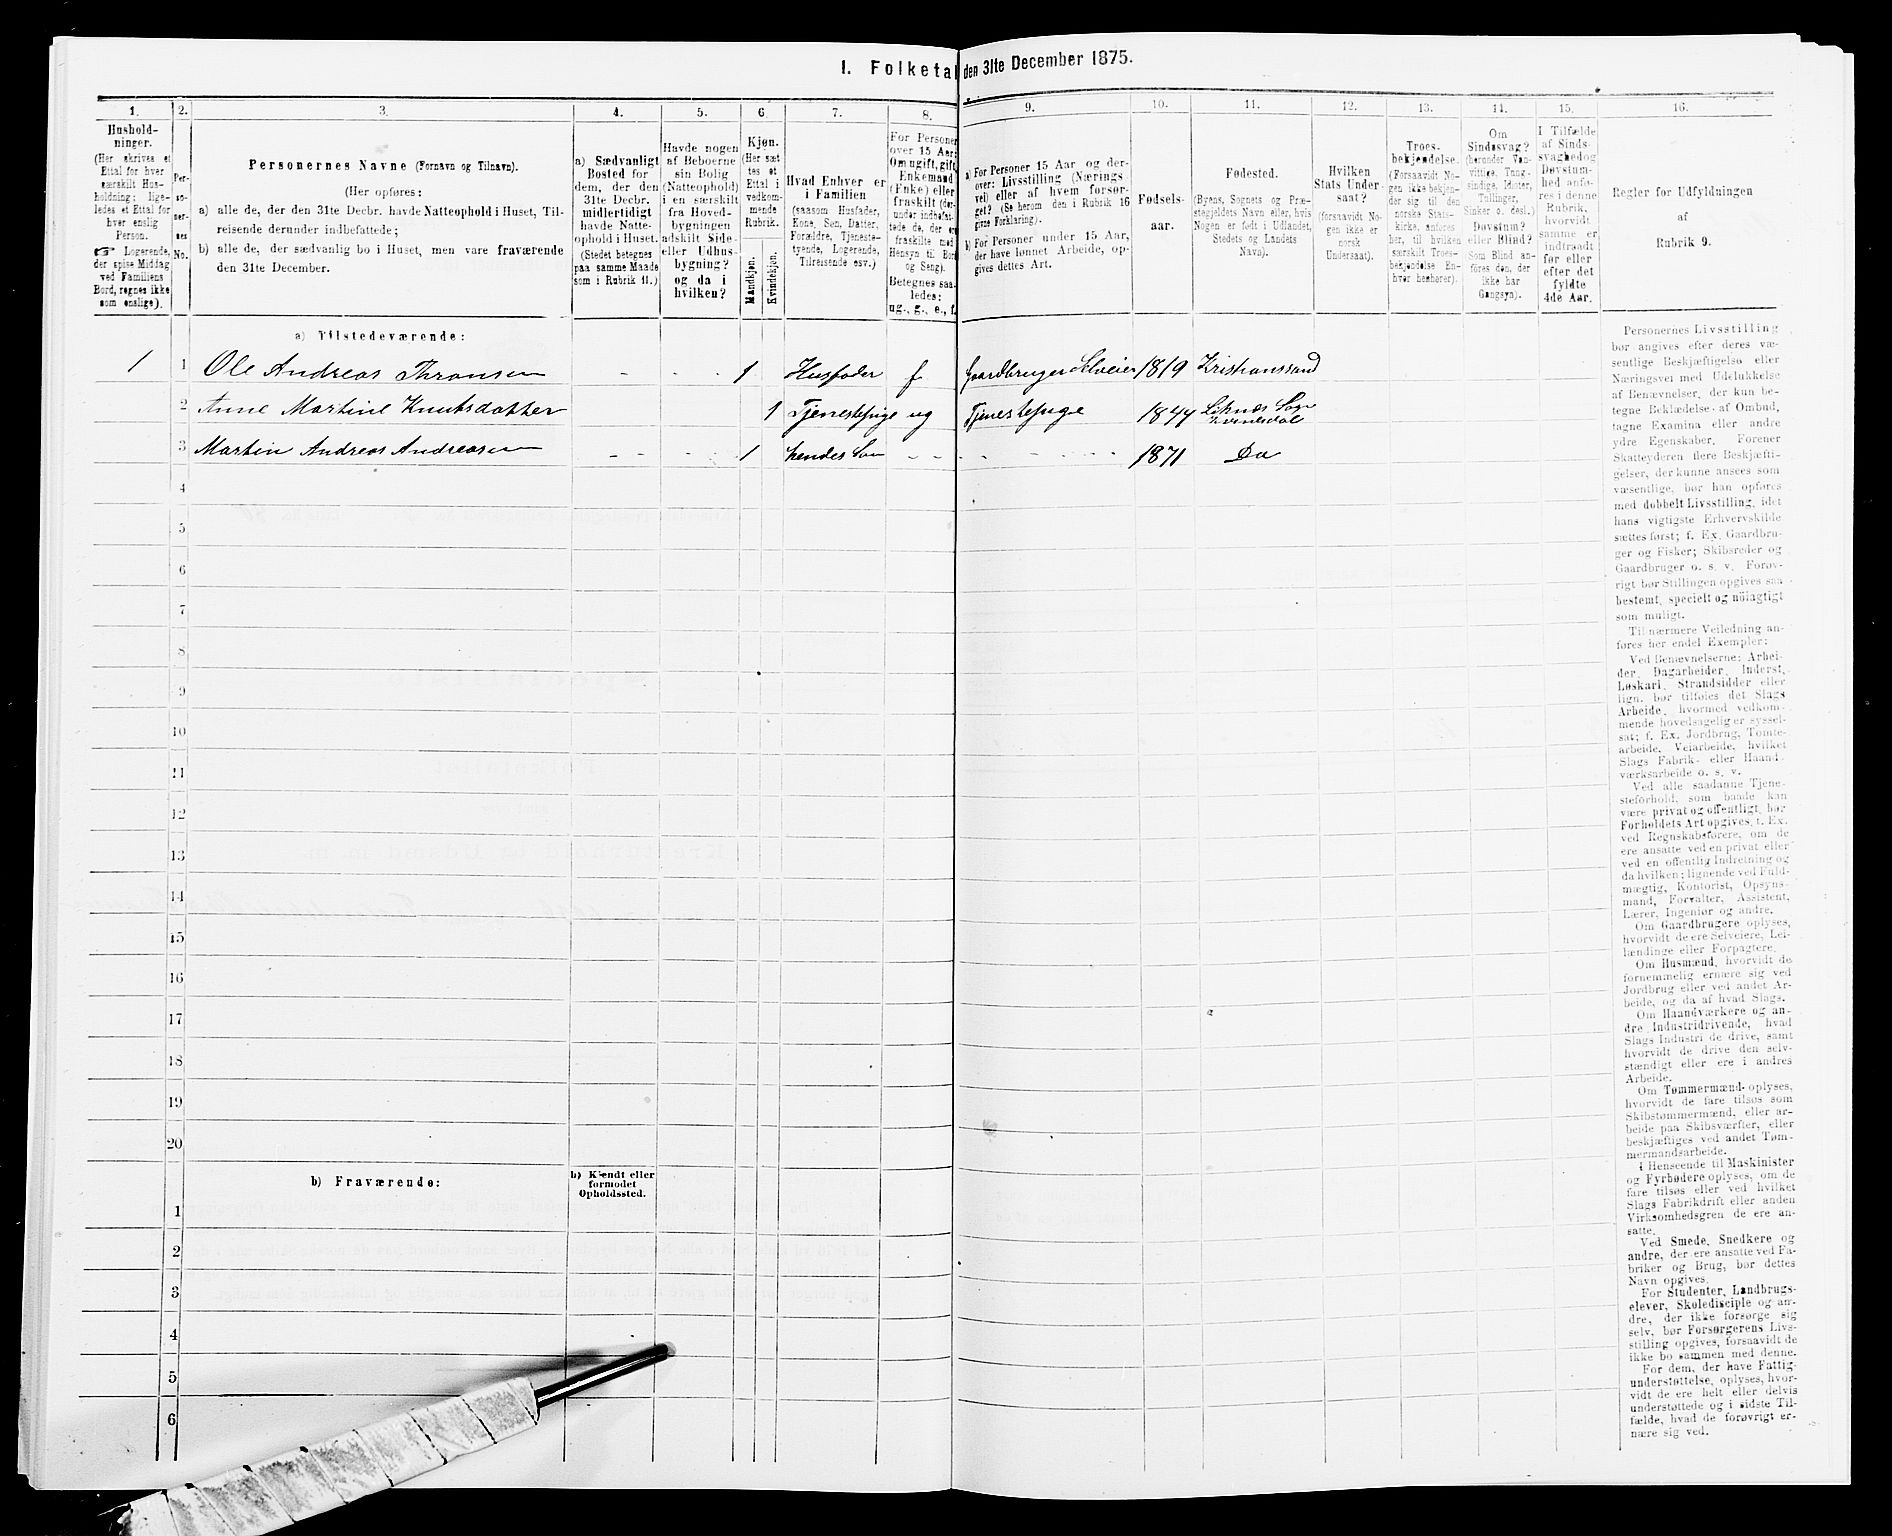 I. Folketal den 31te December 1875.
1. 2. 3. 4. 5. 6. 7. 8. 9. 10. 11. 12. 13. 14. 15. 16.
Hushold-
ninger.
(Her skrives et
Ettal for hver
særskilt Hus-
holdning; lige-
ledes et Ettal for
hver enslig
Person.
☞ Logerende,
der spise Middag
ved Familiens
Bord, regnes ikke
som enslige).
Per-
so-
ner-
nes
No.
Personernes Navne (Fornavn og Tilnavn).
(Her opføres:
a) alle de, der den 31te Decbr. havde Natteophold i Huset, Til-
reisende derunder indbefattede;
b) alle de, der sædvanlig bo i Huset, men vare fraværende
den 31te December.
a) Sædvanligt
Bosted for
dem, der den
31te Decbr.
midlertidigt
havde Natte-
ophold i Huset.
(Stedet betegnes
paa samme Maade
som i Rubrik 11.)
Havde nogen
af Beboerne
sin Bolig
(Natteophold)
i en særskilt
fra Hoved-
bygningen
adskilt Side-
eller Udhus-
bygning?
og da i
hvilken?
Kjøn.
(Her sæt
tes et
Ettal i
vedkom-
mende
Rubrik.
Mandkjøn.
Kvindekjøn.
Hvad Enhver er
i Familien
(saasom Husfader,
Kone, Søn, Datter,
Forældre, Tjeneste-
tyende, Logerende,
Tilreisende osv.)
For Personer
over 15 Aar:
Om ugift, gift,
Enkemand
(Enke) eller
fraskilt (der-
under indbefat-
tede de, der ere
fraskilte med
Hensyn til Bord
og Seng).
Betegnes saa-
ledes:
ug., g., e., f.
a) For Personer 15 Aar og der-
over: Livsstilling (Nærings
vei) eller af hvem forsør-
get? (Se herom den i Rubrik 16
givne Forklaring).
b) For Personer under 15 Aar,
der have lønnet Arbeide, op-
gives dettes Art.
Fødsels-
aar.
Fødested.
(Byens, Sognets og Præ-
stegjeldets Navn eller, hvis
Nogen er født i Udlandet,
Stedets og Landets
Navn).
Hvilken
Stats Under-
saat?
(forsaavidt No-
gen ikke er
norsk
Undersaat).
Troes-
bekjendelse.
(Forsaavidt No-
gen ikke bekjen-
der sig til den
norske Stats-
kirke, anføres
her, til hvilken
særskilt Troes-
bekjendelse En-
hver henhører).
Om
Sindssvag?
(herunder Van-
vittige, Tung-
sindige, Idioter,
Tullinger,
Sinker o. desl.)
Døvstum?
eller Blind?
(Som Blind an-
føres den, der
ikke har
Gangsyn).
I Tilfælde
af Sinds-
svaghed og
Døvstum-
hed anfø-
res i denne
Rubrik,
hvorvidt
samme er
indtraadt
før eller
efter det
fyldte
4de Aar.
Regler for Udfyldningen
af
Rubrik 9.
a) Tilstedeværende:
1 1 Ole Andreas Thronsen - - - - 1 Husfader f Gaardbruger Selveier 1819 Kristianssand
2 Anne Martine Knutsdatter 1 Tjenestepige ug Tjenestepige 1844 Liknæs Sogn
Kvinesdal
3 Martin Andreas Andreasen - - - - 1 hendes Søn - - - - - - 1871 Do
4
5
6
7
8
9
10
11
12
13
14
15
16
17
18
19
20
b) Fraværende:
b) Kjendt eller
formodet
Opholdssted.
1
2
3
4
5
6
Personernes Livsstilling
bør angives efter deres væ-
sentlige Beskjæftigelse eller
Næringsvei med Udelukkelse
af Benævnelser, der kun be-
tegne Beklædelse af Ombud,
tagne Examina eller andre
ydre Egenskaber. Forener
Skatteyderen flere Beskjæfti-
gelser, der kunne ansees som
væsentlige, bør han opføres
med dobbelt Livsstilling, idet
hans vigtigste Erhvervskilde
sættes først; f. Ex. Gaardbru-
ger og Fisker; Skibsreder og
Gaardbruger o. s. v. Forøv-
rigt bør Stillingen opgives saa
bestemt, specielt og nøiagtigt
som muligt.
Til nærmere Veiledning an-
føres her endel Exempler:
Ved Benævnelserne: Arbei-
der, Dagarbeider, Inderst,
Løskari, Strandsidder eller
lign. bør tilføies det Slags
Arbeide, hvormed vedkom-
mende hovedsagelig er syssel-
sat; f. Ex. Jordbrug, Tomte-
arbeide, Veiarbeide, hvilket
Slags Fabrik- eller Haand-
værksarbeide o. s. v.
Ved alle saadanne Tjene-
steforhold, som baade kan
være privat og offentligt, bør
Forholdets Art opgives, f. Ex.
ved Regnskabsførere, om de
ere ansatte ved en privat eller
ved en offentlig Indretning og
da hvilken; lignende ved Fuld-
mægtig, Kontorist, Opsyns-
mand, Forvalter, Assistent,
Lærer, Ingeniør og andre.
Om Gaardbrugere oplyses,
hvorvidt de ere Selveiere, Lei-
lændinge eller Forpagtere.
Om Husmænd, hvorvidt de
fornemmelig ernære sig ved
Jordbrug eller ved andet Ar-
beide, og da af hvad Slags.
Om Haandværkere og an-
dre Industridrivende, hvad
Slags Industri de drive, samt
hvorvidt de drive den selv-
stændigt eller ere i andres
Arbeide.
Om Tømmermænd oplyses,
hvorvidt de fare tilsøs som
Skibstømmermænd, eller ar-
beide paa Skibsværfter, eller
beskjæftiges ved andet Tøm-
mermandsarbeide.
I Henseende til Maskinister
og Fyrbødere oplyses, om de
fare tilsøs eller ved hvilket
Slags Fabrikdrift eller anden
Virksomhedsgren de ere an-
satte.
Ved Smede, Snedkere og
andre, der ere ansatte ved Fa-
briker og Brug, bør dettes
Navn opgives.
For Studenter, Landbrugs-
elever, Skoledisciple og an-
dre, der ikke forsørge sig
selv, bør Forsørgerens Livs-
stilling opgives, forsaavidt de
ikke bo sammen med denne.
For dem, der have Fattig-
understøttelse, oplyses, hvor-
vidt de ere helt eller delvis
understøttede og i sidste Til-
fælde, hvad de forøvrigt er-
nære sig ved.